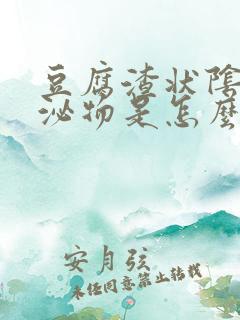 豆腐渣状阴
泌物是怎么
安月弦
未经同意禁止转载